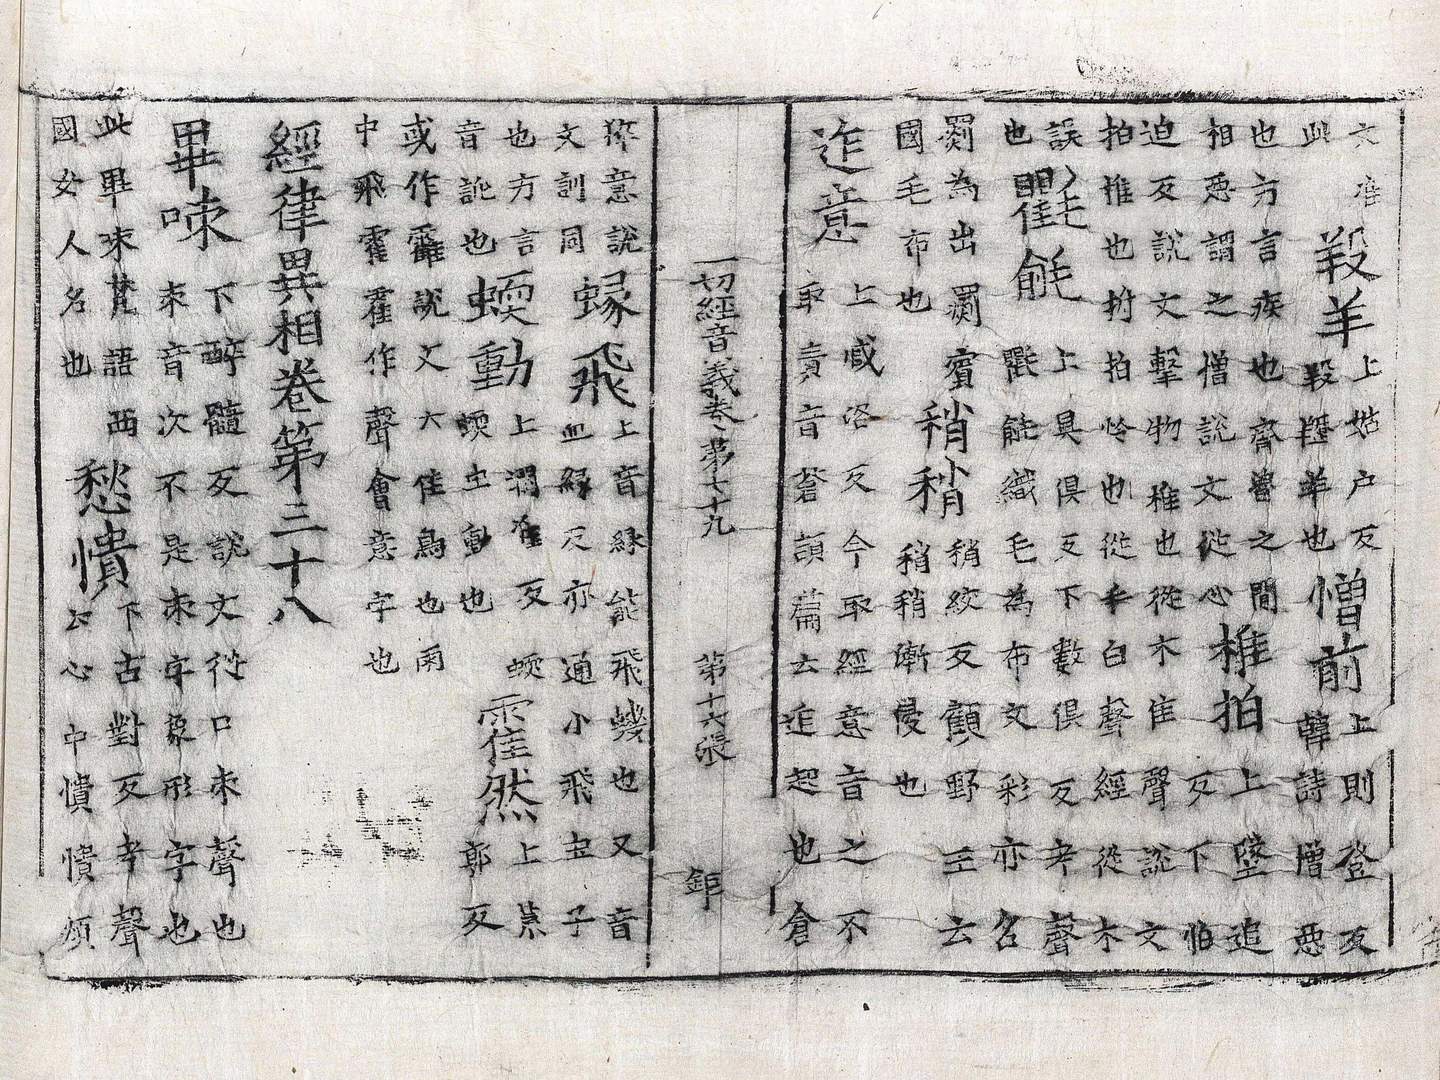 六
此
羖羊
上姑戶反
羖䍽羊也
憎前
上則登反
韓詩憎惡
也方言疾也齊魯之間
相惡謂之憎說文從心
椎拍
上墜追
反下怕
迫反說文擊物椎也從木隹聲說文
拍推也拊拍也從手白聲經從木
誤
也
氍毹
上具俱反下數俱反考聲
氍毹織毛為布文彩亦名
罽為出罽賓
國毛布也
稍稍
稍絞反顧野王云
稍稍漸侵也
迮意
上臧洛反今取經意音之不
取責音蒼頡篇云迮起也倉
一切經音義卷第七十九 第十六張 鉅
猝意說
文訓同
蝝飛
上音緣能飛蟻也又音
血緣反亦通小飛虫子
也方言
音訛也
蝡動
上潤准反蝡
蝡虫動也
靃然
上荒
郭反
或作靃說文六隹鳥也雨
中飛靃靃作聲會意字也
經律異相卷第三十八
畢㖨
下醉髓反說文從口朿聲也
朿音次不是束字象形字也
此畢㖨梵語西
國女人名也
愁憒
下古對反考聲
云心中憒憒煩